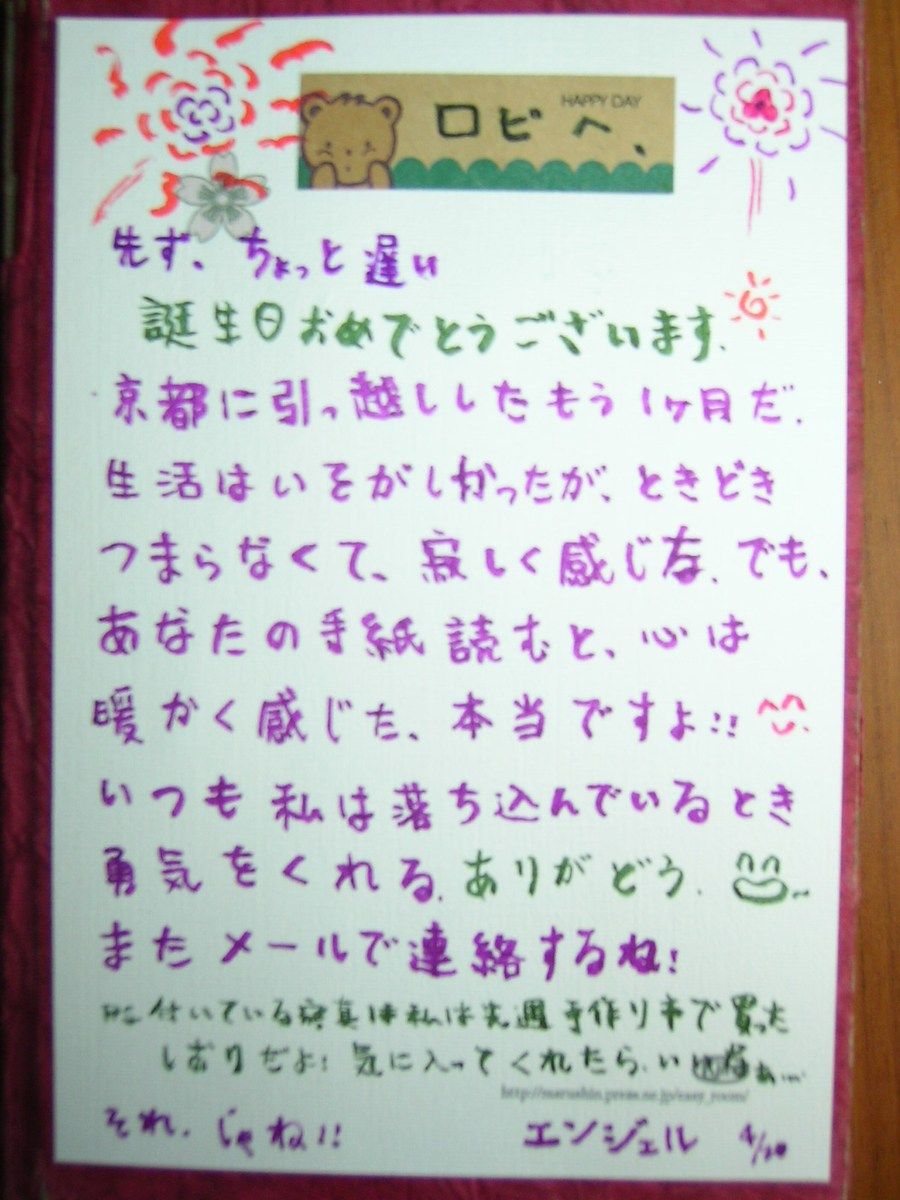 HAPPY DAY
ロビへ、
先ず、ちょっと遅い
誕生日おめでとうございます.
京都に引っ越ししたもう1ヶ月だ.
生活はいそがしかったが、ときどき
つまらなくて、寂しく感じな.でも、
あなたの手紙読むと、心は
暖かく感じた、本当ですよ!!
いつも私は落ち込んでいるとき
勇気をくれる.ありがどう.
またメールで連絡するね!
付いている写真は私は先週手作り市で買った
しおりだよ!気に入ってくれたら.い
http://marushin.press.ne.jp/easy_room/
それ.じゃね!!
エンジェル